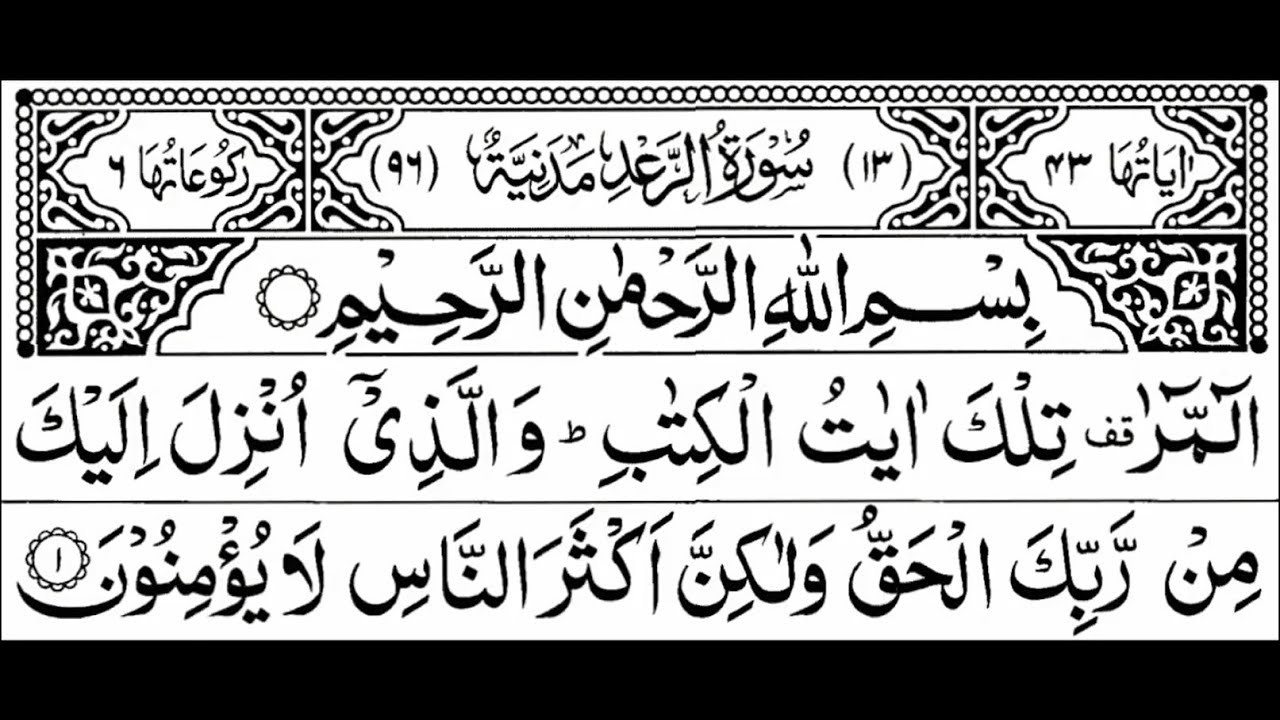 اٰيَاتُهَا ٤٣ (١٣) سُوْرَةُ الرَّعْدِ مَدَنِيَّةٌ (٩٦) رُكُوْعَاتُهَا ٦
بِسْمِ اللّٰهِ الرَّحْمٰنِ الرَّحِيْمِ
الٓمّٓرٰ قف تِلْكَ اٰيٰتُ الْكِتٰبِ ؕ وَالَّذِيْۤ اُنْزِلَ اِلَيْكَ
مِنْ رَّبِّكَ الْحَقُّ وَلٰكِنَّ اَكْثَرَ النَّاسِ لَا يُؤْمِنُوْنَ ١